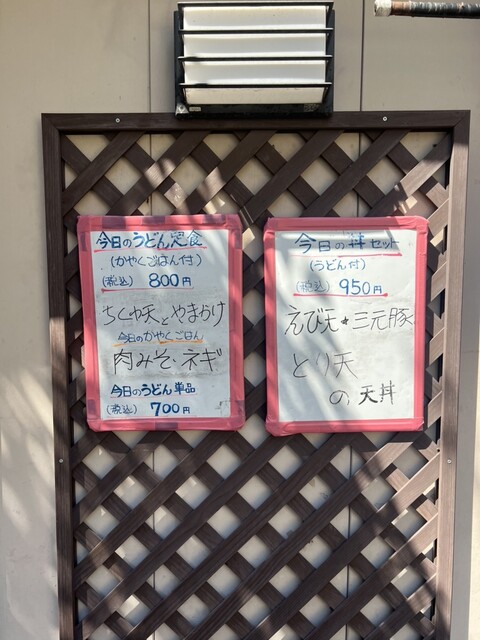 今日のうどん定食
(かやくごはん付)
(税込) 800円
ちくわ天とやまかけ
今日のかやくごはん
肉みそ・ネギ
今日のうどん単品
(税込) 700円
今日の丼セット
(うどん付)
(税込) 950円
えび天★三元豚
とり天
の天丼